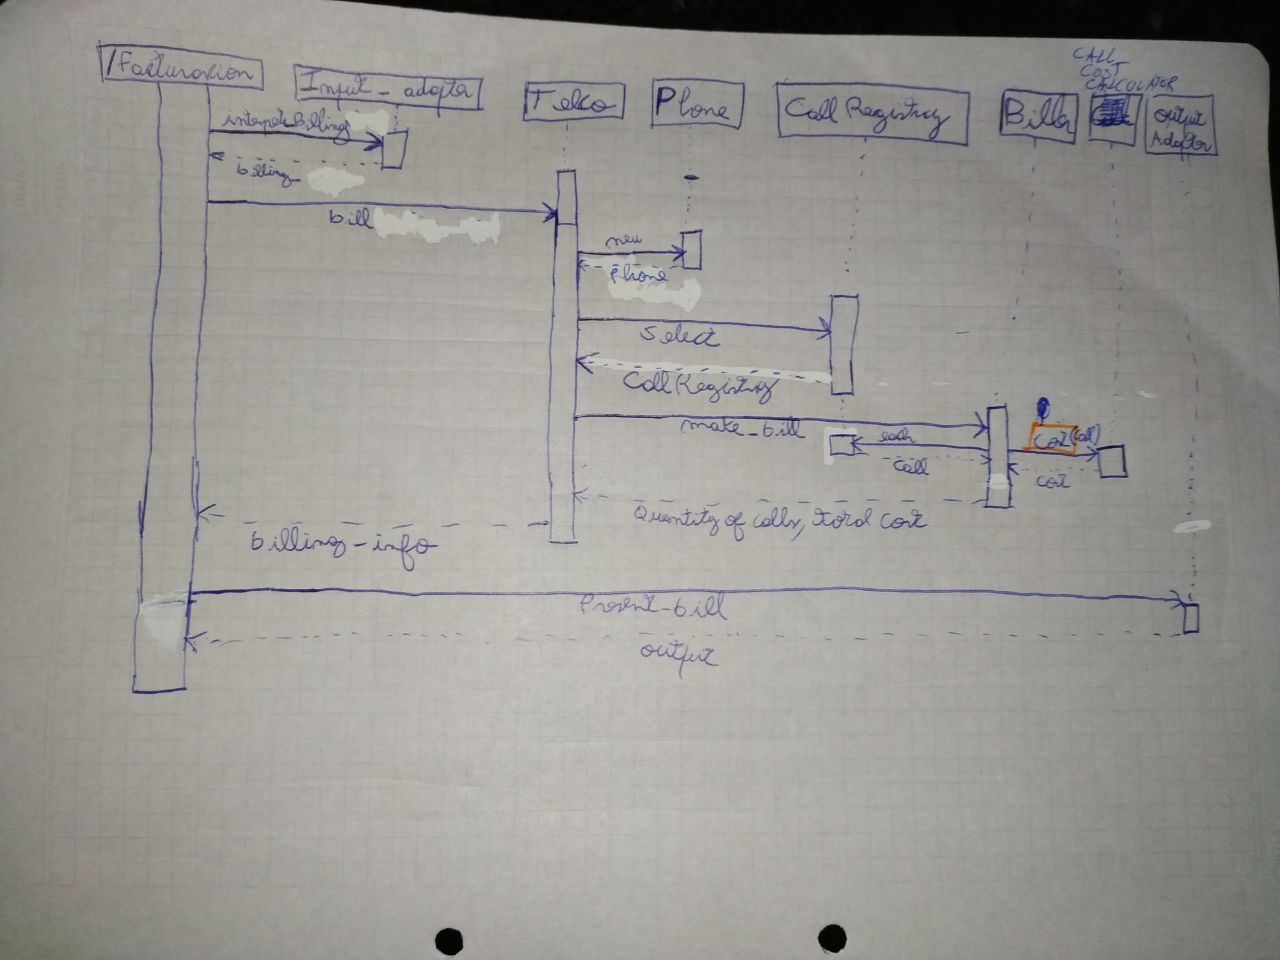 /Facturacion
Input_adapter
Telco
Phone
Call Registry
Biller
CALL
COST
CALCULATOR
Output
Adapter
billing_
bill
new
Phone
Select
Call Registry
make_bill
each
Call
Cost (call)
Cost
Quantity of calls, total cost
billing-info
Present-bill
output